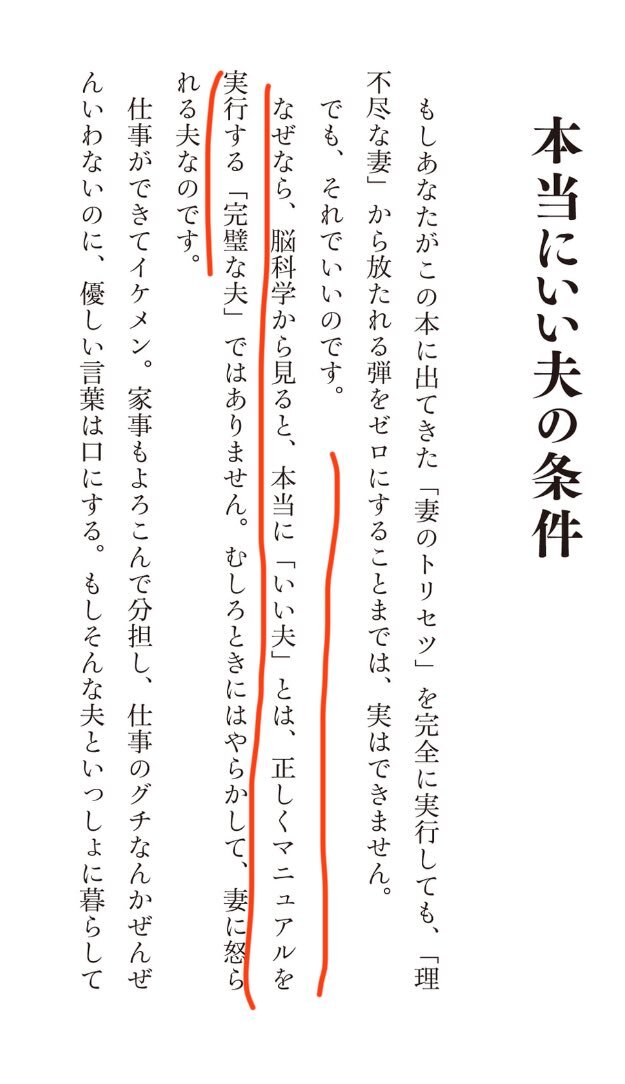 本当にいい夫の条件
もしあなたがこの本に出てきた「妻のトリセツ」を完全に実行しても、「理
不尽な妻」から放たれる弾をゼロにすることまでは、実はできません。
でも、それでいいのです。
なぜなら、脳科学から見ると、本当に「いい夫」とは、正しくマニュアルを
実行する「完璧な夫」ではありません。むしろときにはやらかして、妻に怒ら
れる夫なのです。
仕事ができてイケメン。家事もよろこんで分担し、仕事のグチなんかぜんぜ
んいわないのに、優しい言葉は口にする。もしそんな夫といっしょに暮らして